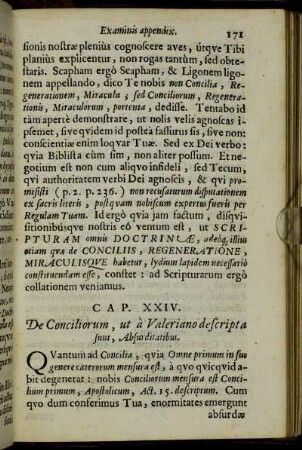 Examinis appendix. 171
sionis nostræ pleniùs cognoscere aves, utqve Tibi
planiùs explicentur, non rogas tantùm, sed obte-
staris. Scapham ergò Scapham, & Ligonem ligo-
nem appellando, dico Te nobis non Concilia, Re-
generationem, Miracula; sed Conciliorum, Regenera-
tionis, Miraculorum, portenta, dedisse. Tentabo id
tàm apertè demonstrare, ut nolis velis agnoscas i-
psemet, sive qvidem id posteà fassurus sis, sive non:
conscientiæ enim loqvar Tuæ. Sed ex Dei verbo:
qvia Biblista cùm sim, non aliter possum. Et ne-
gotium est non cum aliqvo infideli, sed Tecum,
qvi authoritatem verbi Dei agnoscis, & qvi pro-
misisti (p. 2. p. 236.) non recusaturum disputationem
ex sacris literis, postqvam nobiscum expertus fueris per
Regulam Tuam. Id ergò qvia jam factum, disqvi-
sitionibúsqve nostris eò ventum est, ut SCRI-
PTURAM omnis DOCTRINÆ, adeóq; illius
etiam qvæ de CONCILIIS, REGENERATIONE,
MIRACULISQVE habetur, lydium lapidem necessariò
constituendam esse, constet: ad Scripturarum ergò
collationem veniamus.
CAP. XXIV.
De Conciliorum, ut à Valeriano descripta
sunt, Absurditatibus.
QVantum ad Concilia, qvia Omne primum in suo
genere cæterorum mensura est, à qvo qvicqvid ab-
bit degenerat: nobis Conciliorum mensura est Conci-
lium primum, Apostolicum, Act. 15. descriptum. Cum
qvo dum conferimus Tua, enormitates emergunt
absurdæ